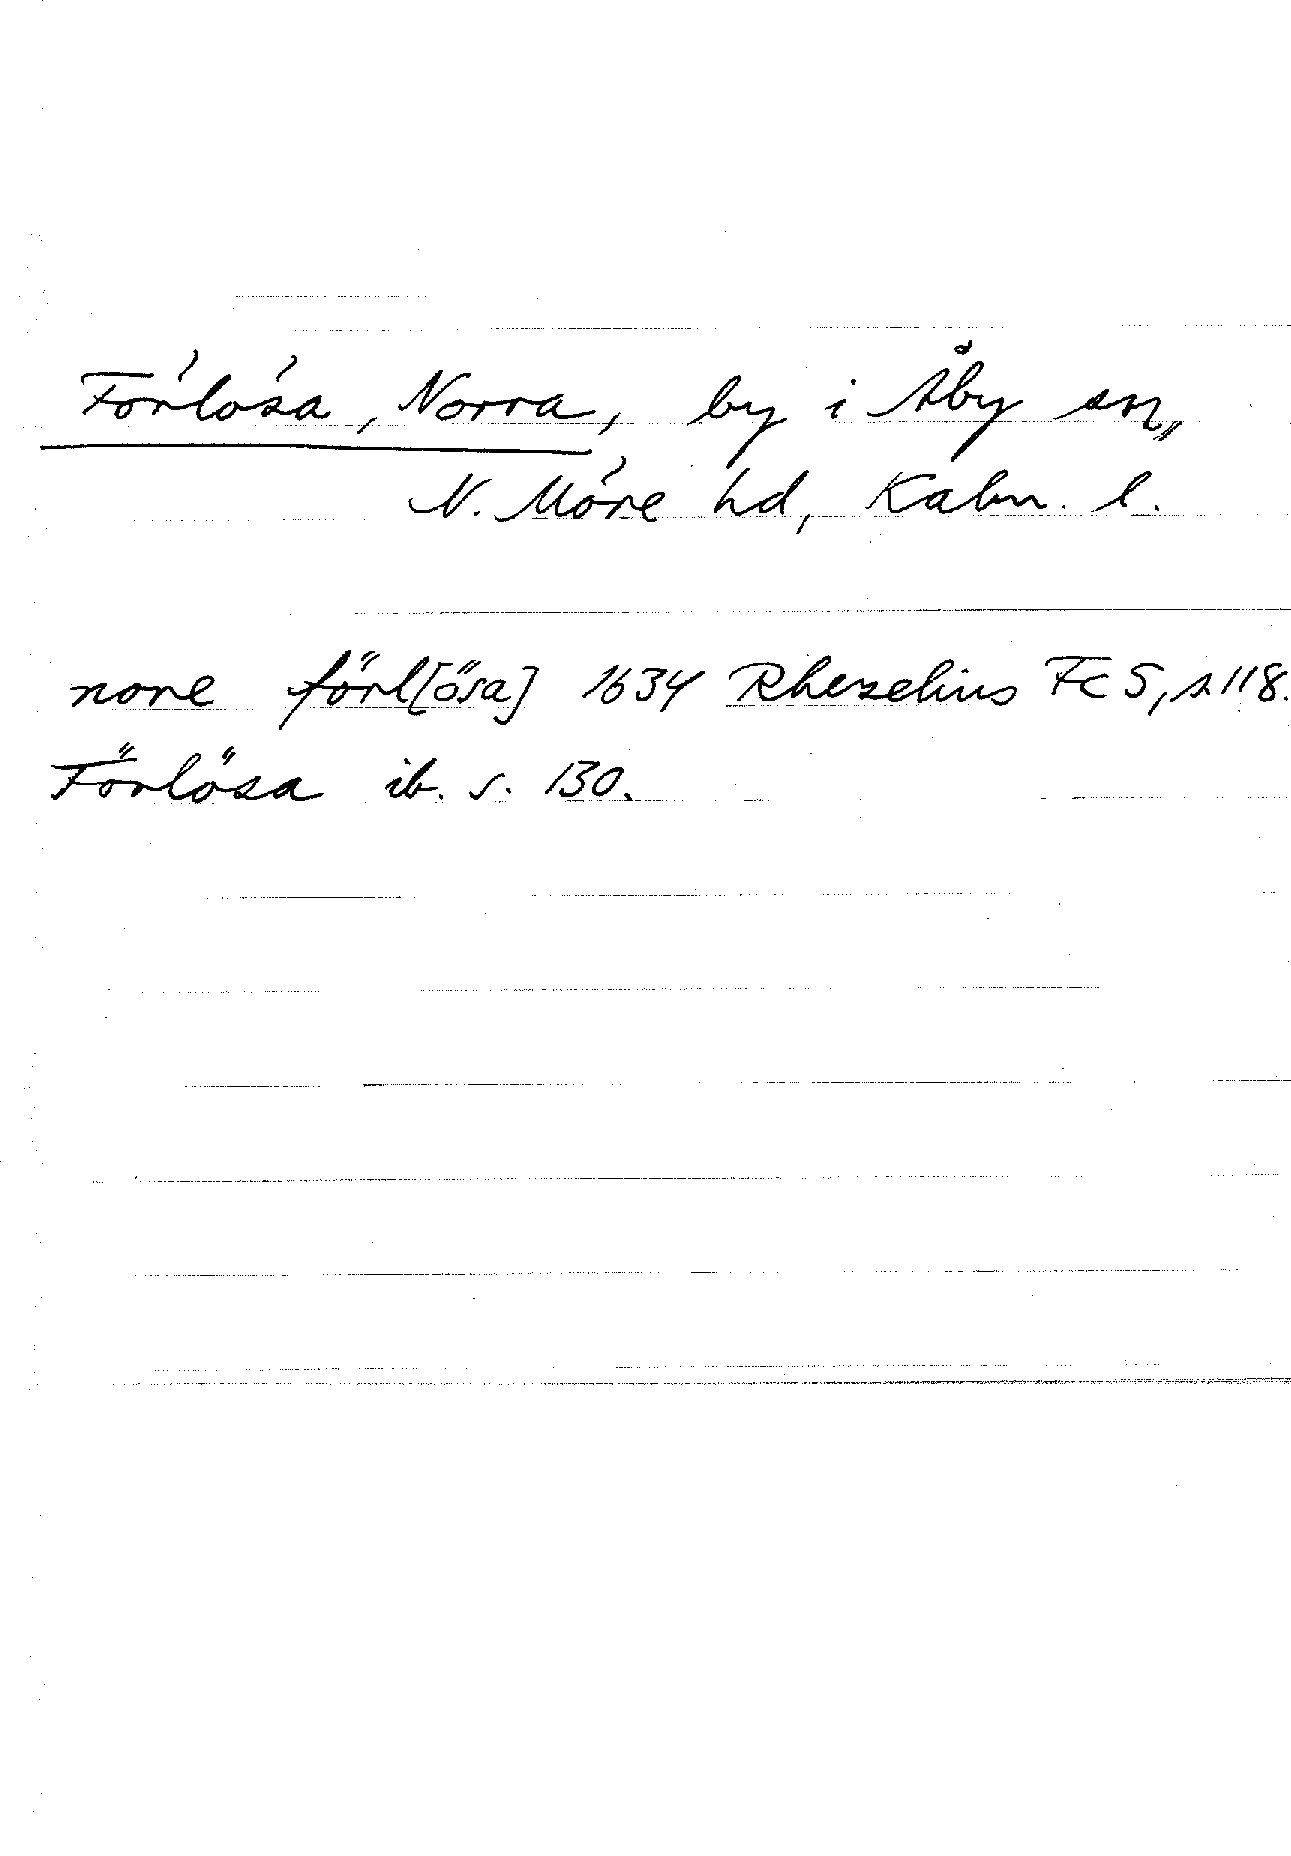 Förlösa, Norra, by i Åby sn,,
N. Möre hd, Kalm. l.
nore förl[ösa] 1634 Rhezelius Fc 5, s 118.
Förlösa ib. s. 130.